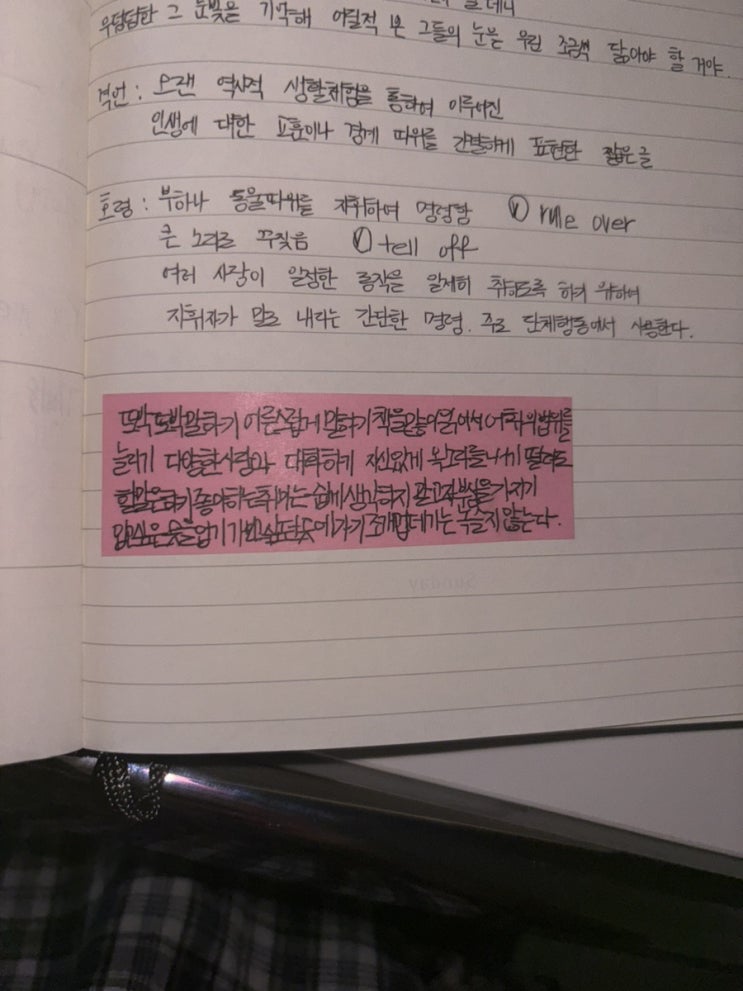 우답답한 그 눈빛은 기억해 어릴적 본 그들의 눈을 우린 조금씩 닮아야 할 거야.
격언 : 오랜 역사적 생활체험을 통하여 이루어진
인생에 대한 교훈이나 경계 따위를 간결하게 표현한 짧은 글
호령 : 부하나 동물따위를 지휘하여 명령함 ⓥ rule over
큰 소리로 꾸짖음 ⓥ tell off
여러 사람이 일정한 동작을 일제히 취하도록 하기 위하여
지휘자가 말로 내리는 간단한 명령. 주로 단체행동에서 사용한다.
또박또박말하기 어른스럽게 말하기 책을많이읽어서 어휘의범위를
늘리기 다양한사람과 대화하기 자신있게 목소리를내기 떨려도
할말은하기 좋아하는취미는 쉽게생각하지 말고 자부심을가지기
입고싶은옷을입기 가보고싶은곳에가기